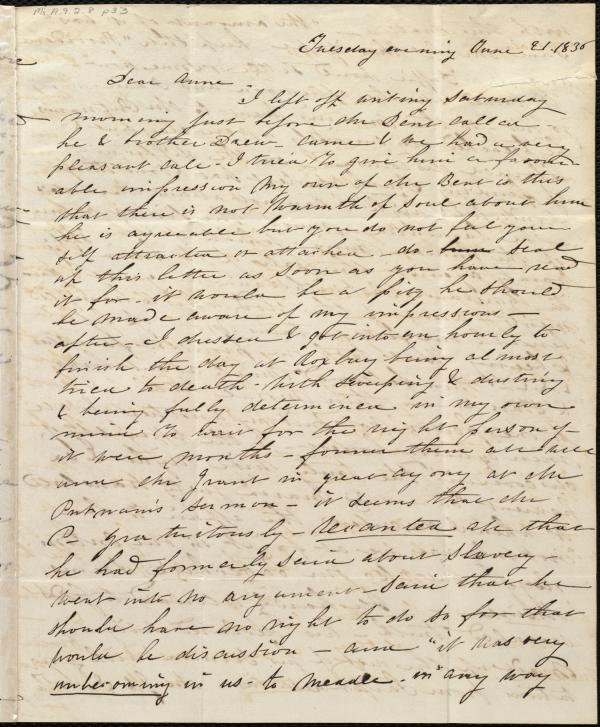 Ms.A.9.2.8 p33
Tuesday evening June 21. 1836
Dear Anne
I left off writing Saturday
morning just before the Dent called
he & brother Drew came & we had a very
pleasant call - I tried to give him a favor-
able impression My own of the Bent is this
that there is not warmth of soul about him
he is agreeable but you do not feel your
self attracted or attached - do seal
up this letter as soon as you have read
it for - it would be a pity he should
be made aware of my impressions -
after - I dressed & got into an hourly to
finish the day at Roxbury being almost
tried to death - with sweeping & dusting
& being fully determined in my own
mind to wait for the right person if
it were months - found them all well
and the Grant in great agony at the
Putnam's sermon - it seems that the
P- gratuitously - recanted all that
he had formerly said about slavery -
went into no argument - said that he
should have no right to do so for that
would be discussion - and "it was very
unbecoming in us - to meddle - in" any way